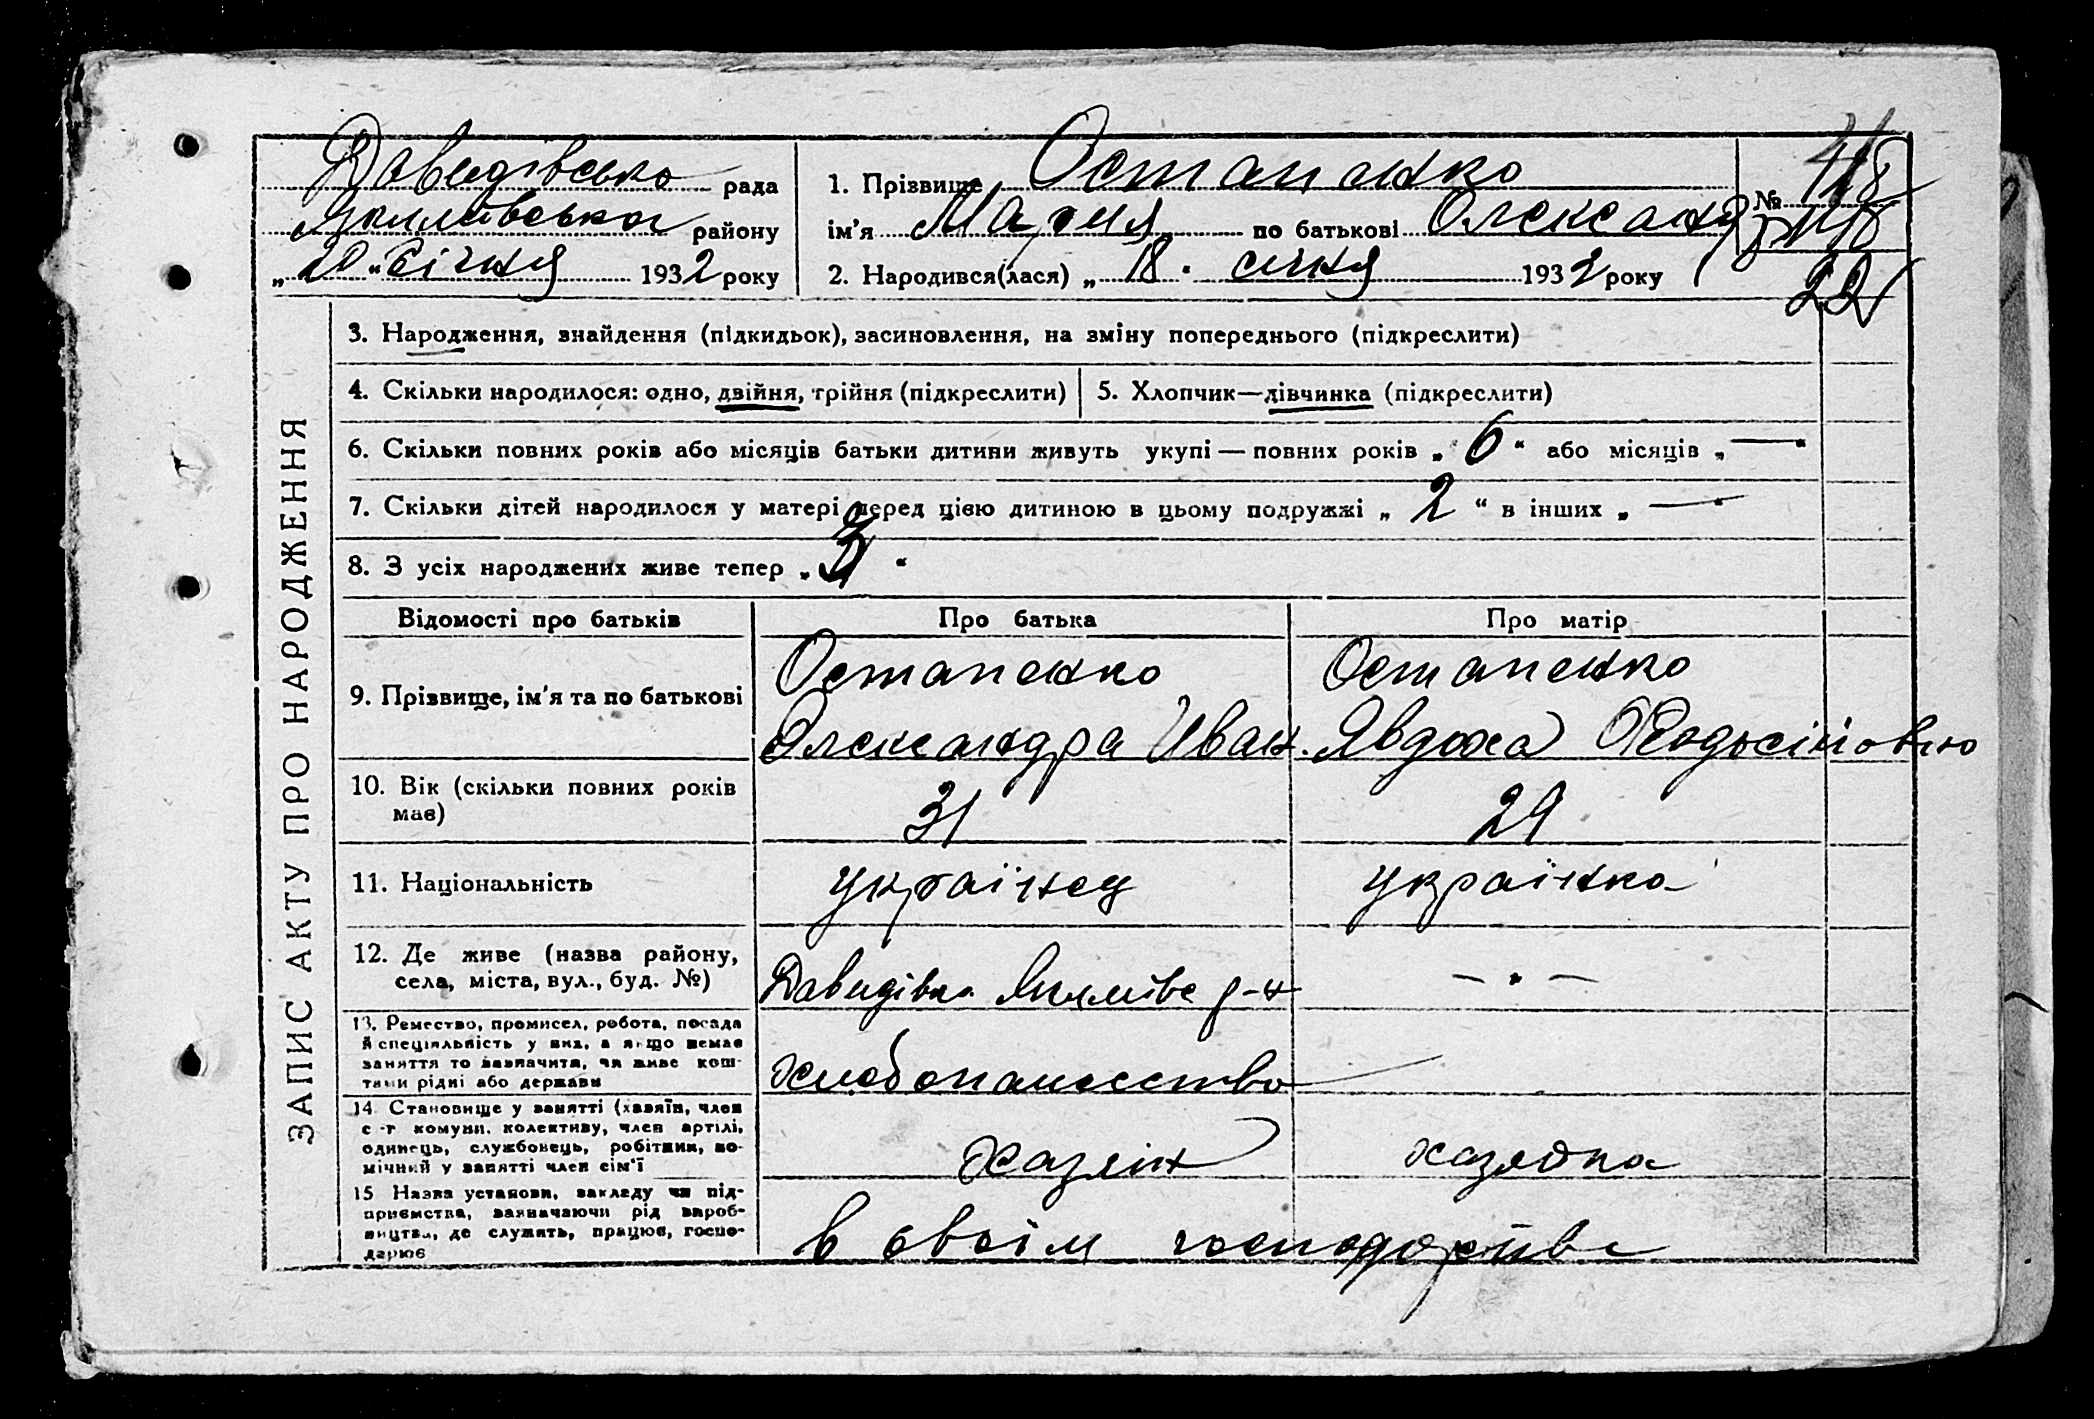 Давидівсько рада
Якимівсько району
„20“ січня 1932 року
1. Прізвище Остапенко
ім'я Мария по батькові Олександр
2. Народився(лася) „18“ січня 1932 року
№
22
ЗАПИС АКТУ ПРО НАРОДЖЕННЯ
3. Народження, знайдення (підкидьок), засиновлення, на зміну попереднього (підкреслити)
4. Скільки народилося: одно, двійня, трійня (підкреслити)
5. Хлопчик—дівчинка (підкреслити)
6. Скільки повних років або місяців батьки дитини живуть укупі — повних років „6“ або місяців „—“
7. Скільки дітей народилося у матері перед цією дитиною в цьому подружжі „2“ в інших „—“
8. З усіх народжених живе тепер „3“
Відомості про батьків Про батька Про матір
9. Прізвище, ім'я та по батькові
Остапенко
Олександра Иван.
Остапенко
Явдоха
10. Вік (скільки повних років має) 31 29
11. Національність українец українка
12. Де живе (назва району, села, міста, вул., буд. №) Давидівка Якимівс р-н —„—
13. Ремество, промисел, робота, посада
й спеціяльність у них, а якщо немає
заняття то зазначити, чи живе кош-
тами рідні або держави
хлебопашество
14. Становище у занятті (хазяїн, член
с.-г комуни, колективу, член артілі,
одинець, службовець, робітник, по-
мічний у занятті член сім'ї
хазяін хазяйка
15 Назва установи, закладу чи під-
приємства, зазначаючи рід вироб-
ництва, де служить, працює, госпо-
дарює
в своїм господарстве